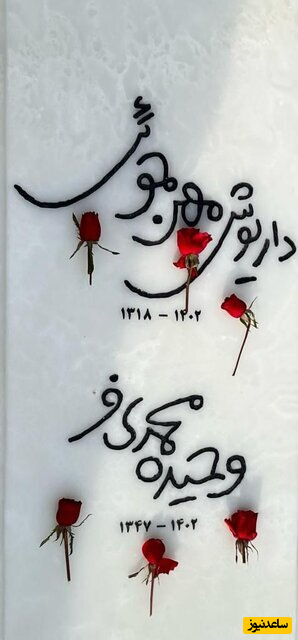 داریوش مهرجوئی
۱۳۱۸ - ۱۴۰۲
وحیده محمدی فر
۱۳۴۷ - ۱۴۰۲
ساعدنیوز